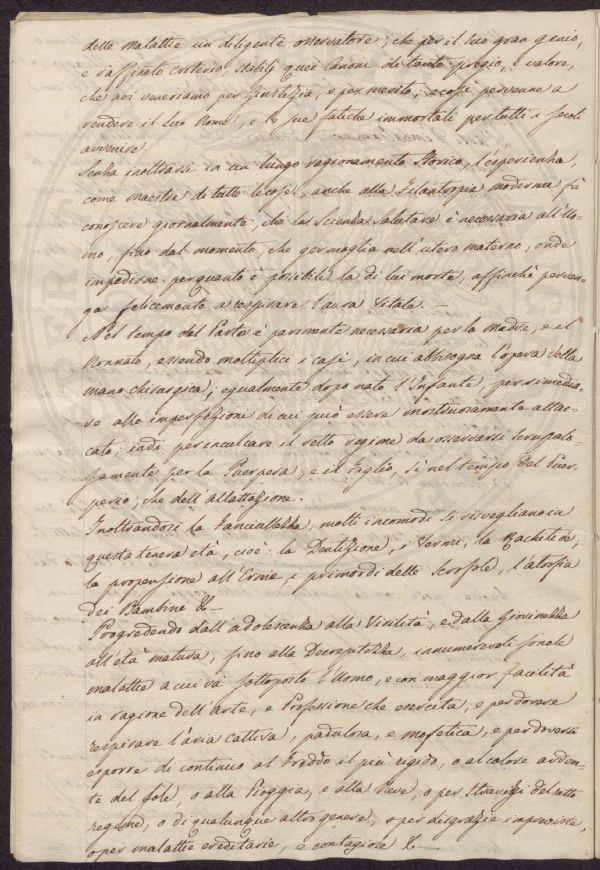 delle Malattie un diligente osservatore; che per il suo gran genio,
e raffinato criterio, stabilj quei Canoni di tanto pregio, e valore,
che noi veneriamo per Giustizia, e per merito; e così pervenne a
rendere il suo Nome, e le sue fatiche immortali per tutti i secoli
avvenire.
Senza inoltrarsi in un lungo ragionamento Storico, l'esperienza,
come maestra di tutte le cose, anche alla Filantropia moderna, fà
conoscere giornalmente, che la Scienza Salutare è necessaria all'Uo-
mo, fino dal momento, che germoglia nell'utero materno, onde
impedirne per quanto è possibile la di lui morte, affinchè perven-
ga felicemente a respirare l'aura Vitale. —
Nel tempo del Parto è parimente necessaria per la Madre, e il
Nonnato, essendo moltiplici i casi, in cui abbisogna l'opera della
mano chirurgica; egualmente dopo nato l'Infante, per rimedia-
re alle imperfezioni di cui può essere mostruosamente attac-
cato; indi per inculcare il retto regime da osservarsi scrupolo-
samente per la Puerpera, e il Figlio, sì nel tempo del Puer-
perio, che dell'allattazione.
Inoltrandosi la Fanciullezza, molti incomodi si risvegliano in
questa tenera età, cioè: la Dentizione, i Vermi, la Rachitide,
la propensione all'Ernie, i primordi delle Scrofole, l'atrofia
dei Bambini &—
Progredendo dall'adolescenza alla Virilità, e dalla Giovinezza
all'età matura, fino alla Decrepitezza, innumerevoli sono le
malattie a cui và sottoposto l'Uomo, e con maggior facilità
in ragione dell'Arte, e Professione che esercita, e per dovere
respirare l'aria cattiva, padulosa, e mofetica, e per doversi
esporre di continuo al Freddo il più rigido, o al calore arden-
te del Sole, o alla Pioggia, e alla Neve, o per Stravizzi del retto
regime, o di qualunque altro genere, o per disgrazie improvviste,
o per malattie ereditarie, e contagiose &—